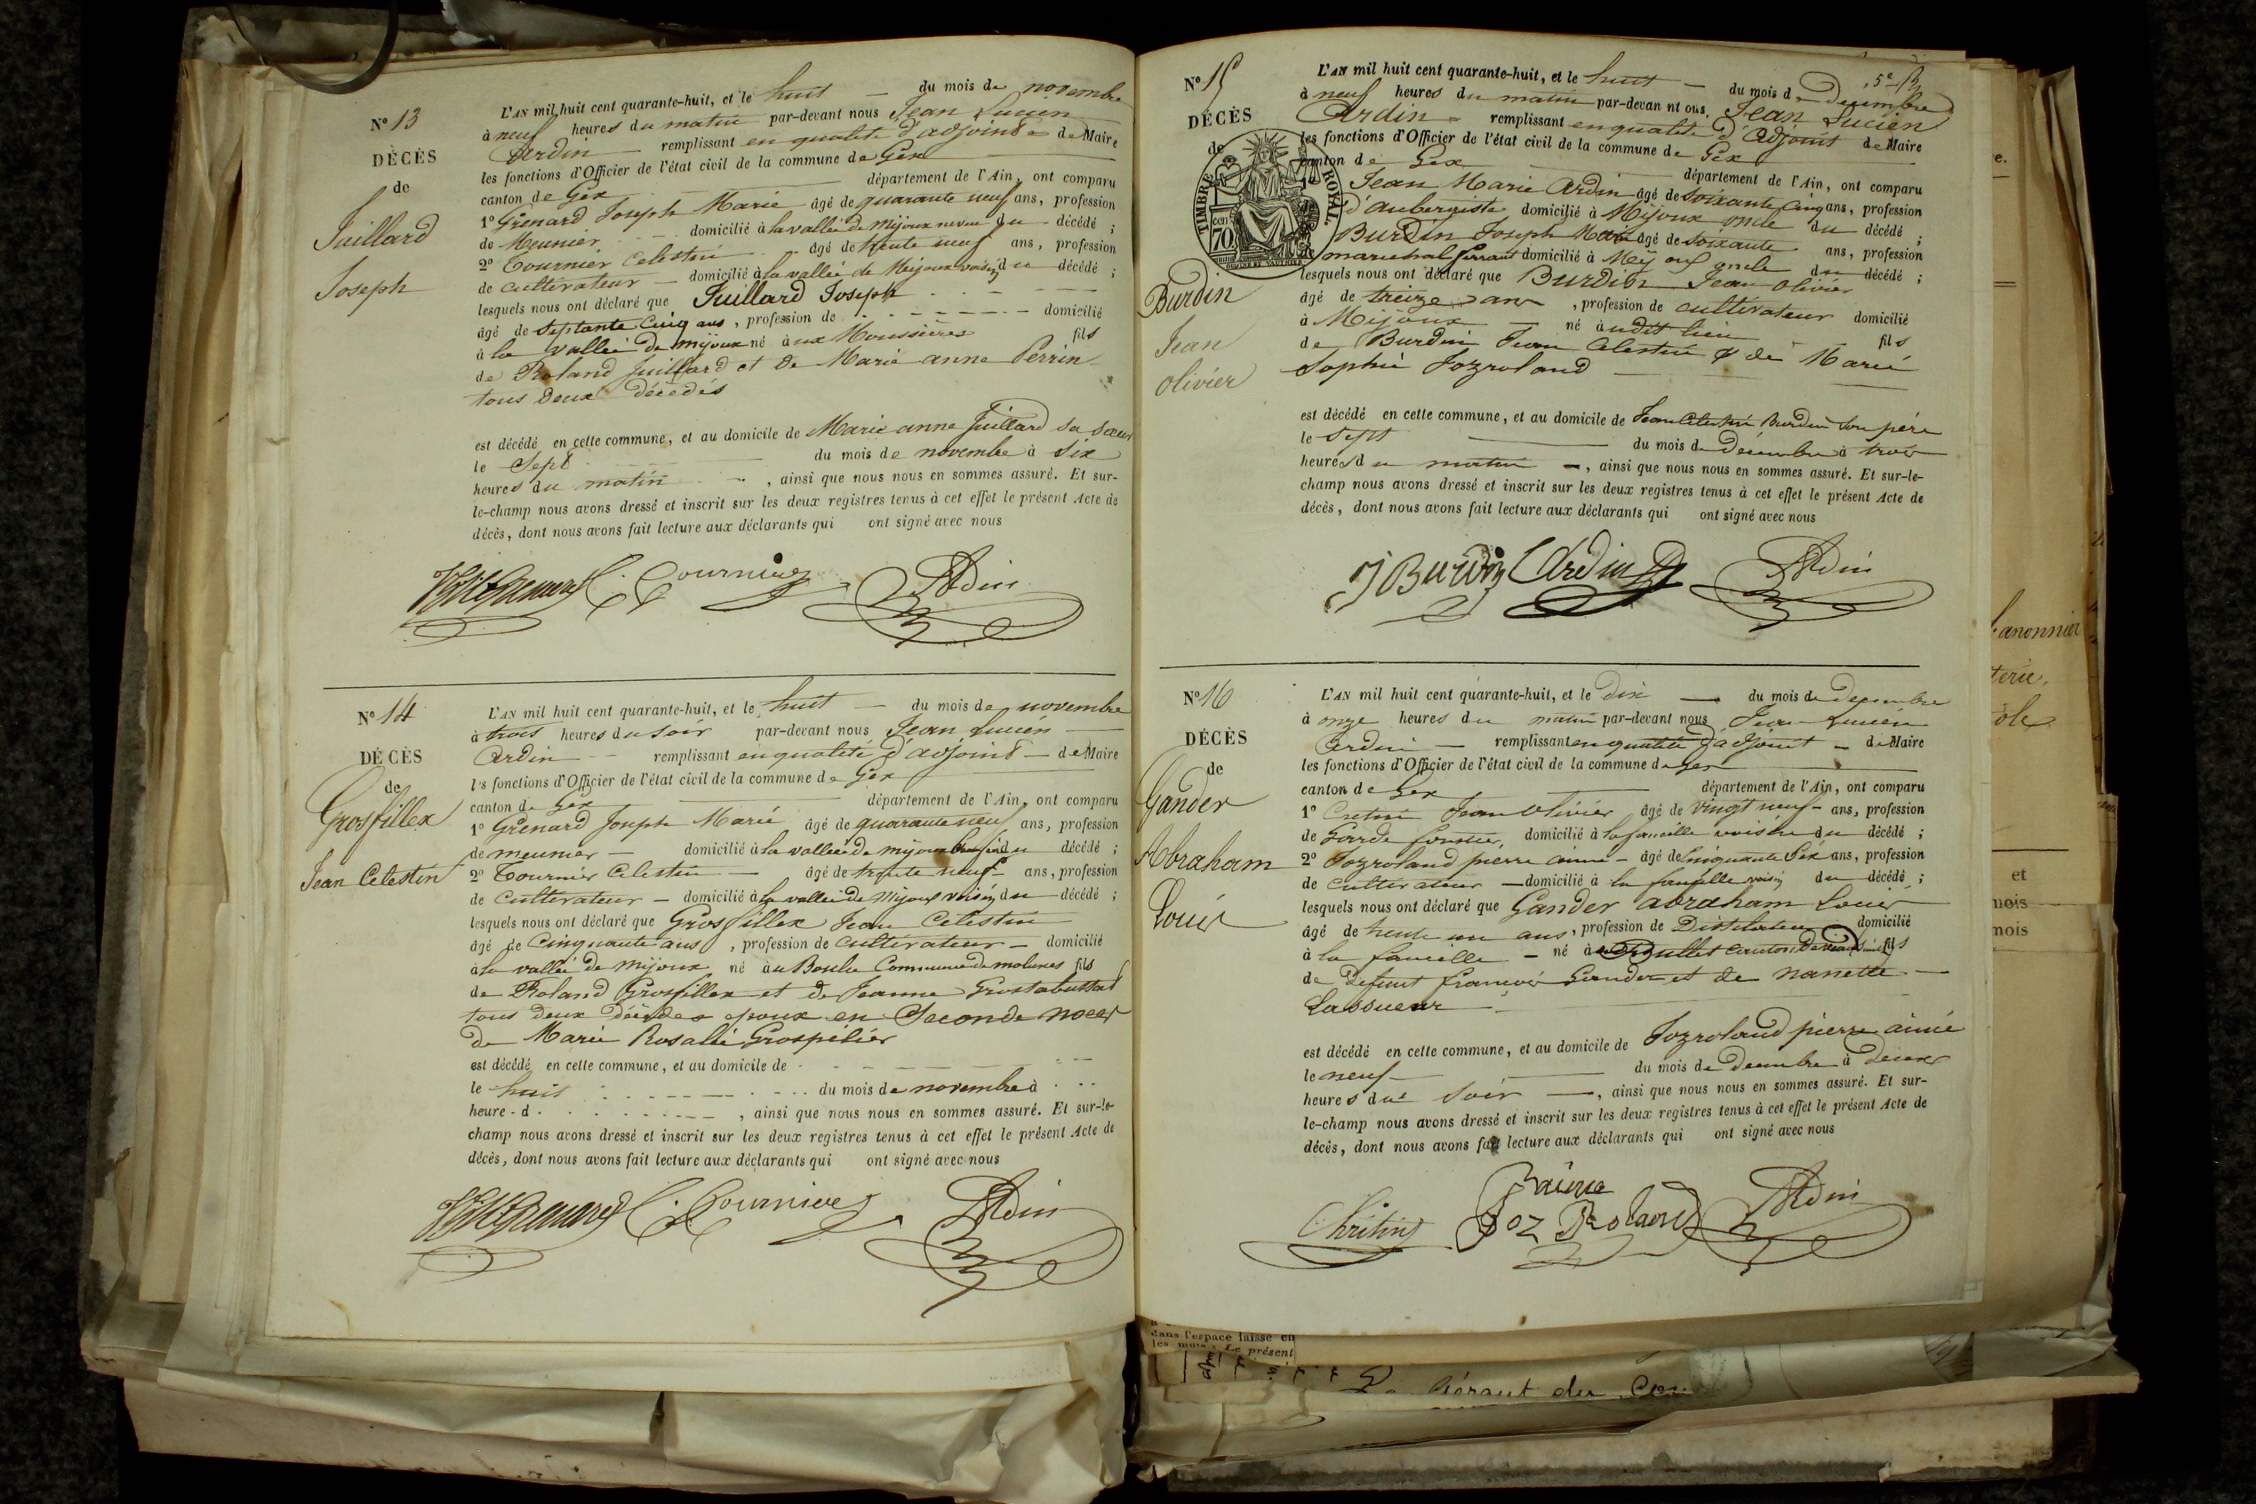 N° 13
DÉCÈS
de
Juillard
Joseph
L'AN mil huit cent quarante-huit, et le huit — du mois de novembre
à neuf heures du matin par-devant nous Jean Lucien
Ardin — remplissant en qualité d'adjoint — de Maire
les fonctions d'Officier de l'état civil de la commune de Gex
canton de Gex — département de l'Ain, ont comparu
1° Grenard Joseph Marie âgé de quarante neuf ans, profession
de Meunier domicilié à la vallée de Mijoux neveu du décédé ;
2° Tournier Celestin âgé de trente neuf ans, profession
de cultivateur — domicilié à la vallée de Mijoux voisin du décédé ;
lesquels nous ont déclaré que Juillard Joseph
âgé de septante cinq ans, profession de — domicilié
à la vallée de mijoux né aux Moussières fils
de Roland Juillard et de Marie anne Perrin
tous deux décédés
est décédé en cette commune, et au domicile de Marie anne Juillard sa sœur
le Sept — du mois de novembre à six
heures du matin, ainsi que nous nous en sommes assuré. Et sur-
le-champ nous avons dressé et inscrit sur les deux registres tenus à cet effet le présent Acte de
décès, dont nous avons fait lecture aux déclarants qui ont signé avec nous
C. Tournier Ardin
N° 14
DÉCÈS
de
Grosfillex
Jean Célestin
L'AN mil huit cent quarante-huit, et le huit — du mois de novembre
à trois heures du soir par-devant nous Jean Lucien
Ardin — remplissant en qualité d'adjoint — de Maire
les fonctions d'Officier de l'état civil de la commune de Gex
canton de Gex — département de l'Ain, ont comparu
1° Grenard Joseph Marie âgé de quarante neuf ans, profession
de meunier — domicilié à la vallée de mijoux du décédé ;
2° Tournier Celestin — âgé de trente neuf ans, profession
de cultivateur — domicilié à la vallée de Mijoux voisin du décédé ;
lesquels nous ont déclaré que Grosfillex Jean Célestin
âgé de Cinquante ans, profession de cultivateur — domicilié
à la vallée de mijoux né au Boulu Commune de molunes fils
de Roland Grosfillex et de Jeanne Grostabussiat
tous deux décédés époux en Seconde noces
de Marie Rosalie Grospélier
est décédé en cette commune, et au domicile de
le huit du mois de novembre à
heure d , ainsi que nous nous en sommes assuré. Et sur-le-
champ nous avons dressé et inscrit sur les deux registres tenus à cet effet le présent Acte de
décès, dont nous avons fait lecture aux déclarants qui ont signé avec nous
C. Tournier Ardin
N° 15
DÉCÈS
de
TIMBRE ROYAL
70
Burdin
Jean
olivier
L'AN mil huit cent quarante-huit, et le huit — du mois de Décembre
à neuf heures du matin par-devant nous, Jean Lucien
Ardin — remplissant en qualité d'Adjoint de Maire
les fonctions d'Officier de l'état civil de la commune de Gex
canton de Gex — département de l'Ain, ont comparu
1° Jean Marie Ardin âgé de soixante cinq ans, profession
d'aubergiste domicilié à Mijoux oncle du décédé ;
Burdin Joseph Marie âgé de soixante ans, profession
de marechal ferrant domicilié à Mijoux oncle du décédé ;
lesquels nous ont déclaré que Burdin Jean olivier
âgé de treize ans, profession de cultivateur domicilié
à Mijoux — né audit lieu fils
de Burdin Jean Celestin & de Marie
Sophie Jozroland
est décédé en cette commune, et au domicile de Jean Celestin Burdin son père
le sept — du mois de Décembre à trois
heures du matin —, ainsi que nous nous en sommes assuré. Et sur-le-
champ nous avons dressé et inscrit sur les deux registres tenus à cet effet le présent Acte de
décès, dont nous avons fait lecture aux déclarants qui ont signé avec nous
J Burdin Ardin Ardin
N° 16
DÉCÈS
de
Gander
Abraham
Louis
L'AN mil huit cent quarante-huit, et le dix — du mois de Décembre
à onze heures du matin par-devant nous Jean Lucien
Ardin — remplissant en qualité d'adjoint — de Maire
les fonctions d'Officier de l'état civil de la commune de Gex
canton de Gex — département de l'Ain, ont comparu
1° Cretin Jean Olivier âgé de vingt neuf ans, profession
de Garde forestier, domicilié à la faucille voisin du décédé ;
2° Jozroland pierre aimé — âgé de Cinquante Six ans, profession
de cultivateur — domicilié à la faucille voisin du décédé ;
lesquels nous ont déclaré que Gander abraham Louis
âgé de trente un ans, profession de Distilateur domicilié
à la faucille — né à canton de fils
de Defunt françois Gander et de nanette —
Lassueur —
est décédé en cette commune, et au domicile de Jozroland pierre aimé
le neuf — du mois de Decembre à deux
heures du soir —, ainsi que nous nous en sommes assuré. Et sur-
le-champ nous avons dressé et inscrit sur les deux registres tenus à cet effet le présent Acte de
décès, dont nous avons fait lecture aux déclarants qui ont signé avec nous
Chrétin Joz Roland Ardin
et
mois
mois
dans l'espace laissé en
les mots. Le présent